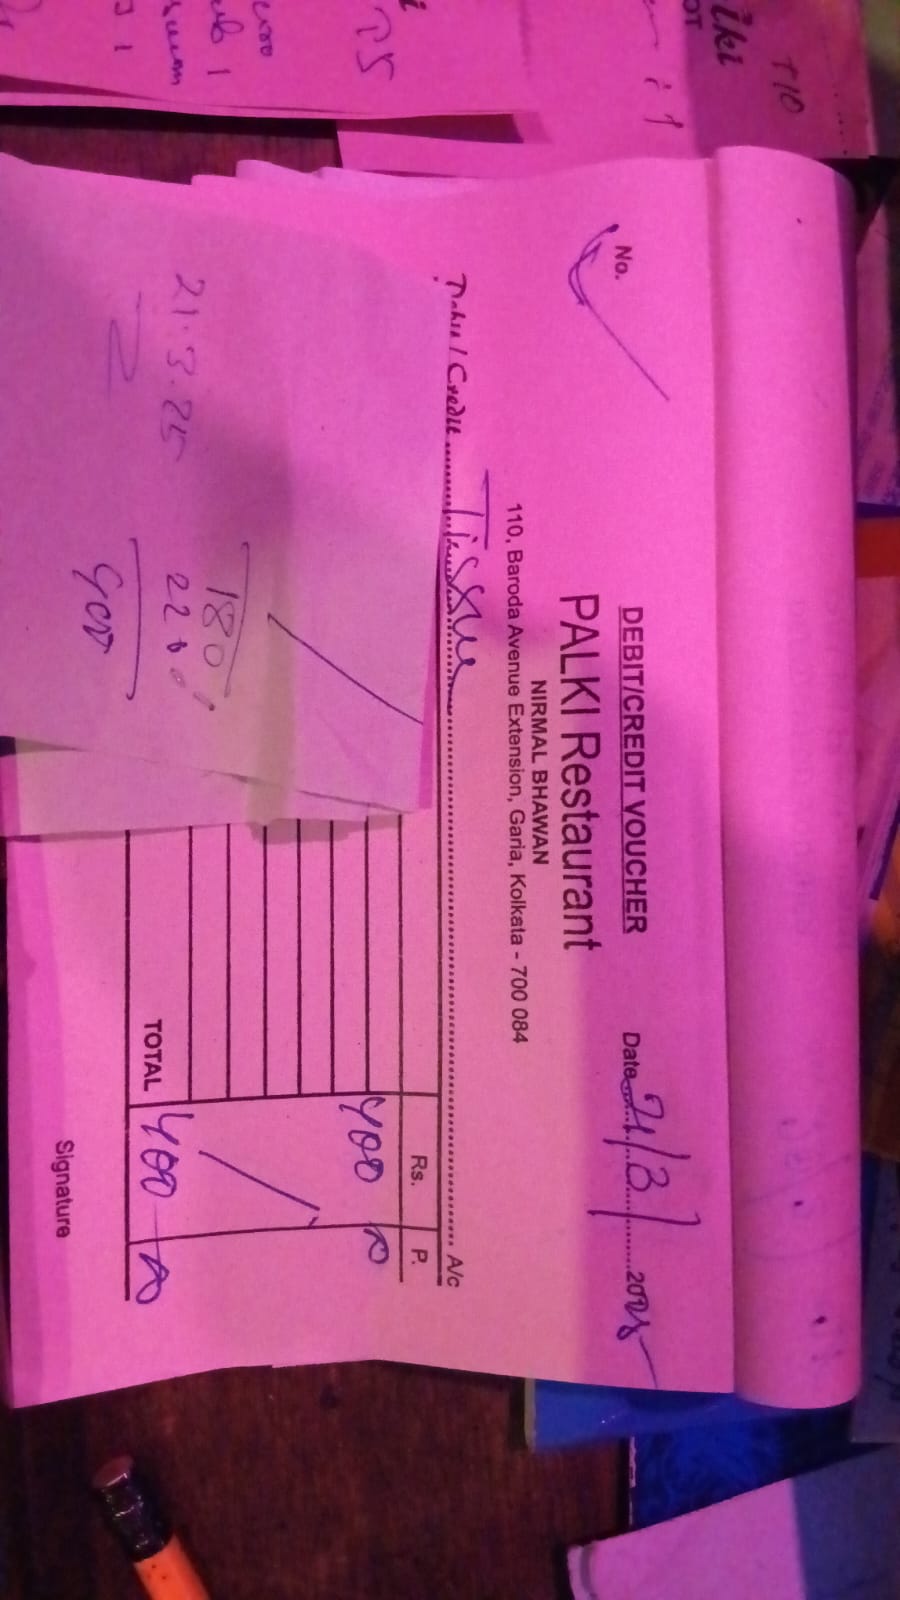 DEBIT/CREDIT VOUCHER
No.
Date 21/3/ 2025
PALKI Restaurant
NIRMAL BHAWAN
110, Baroda Avenue Extension, Garia, Kolkata - 700 084
Debit / Credit Tissue A/c
Rs. P.
400
TOTAL 400
Signature
21.3.25
180
220
400
T5
T10